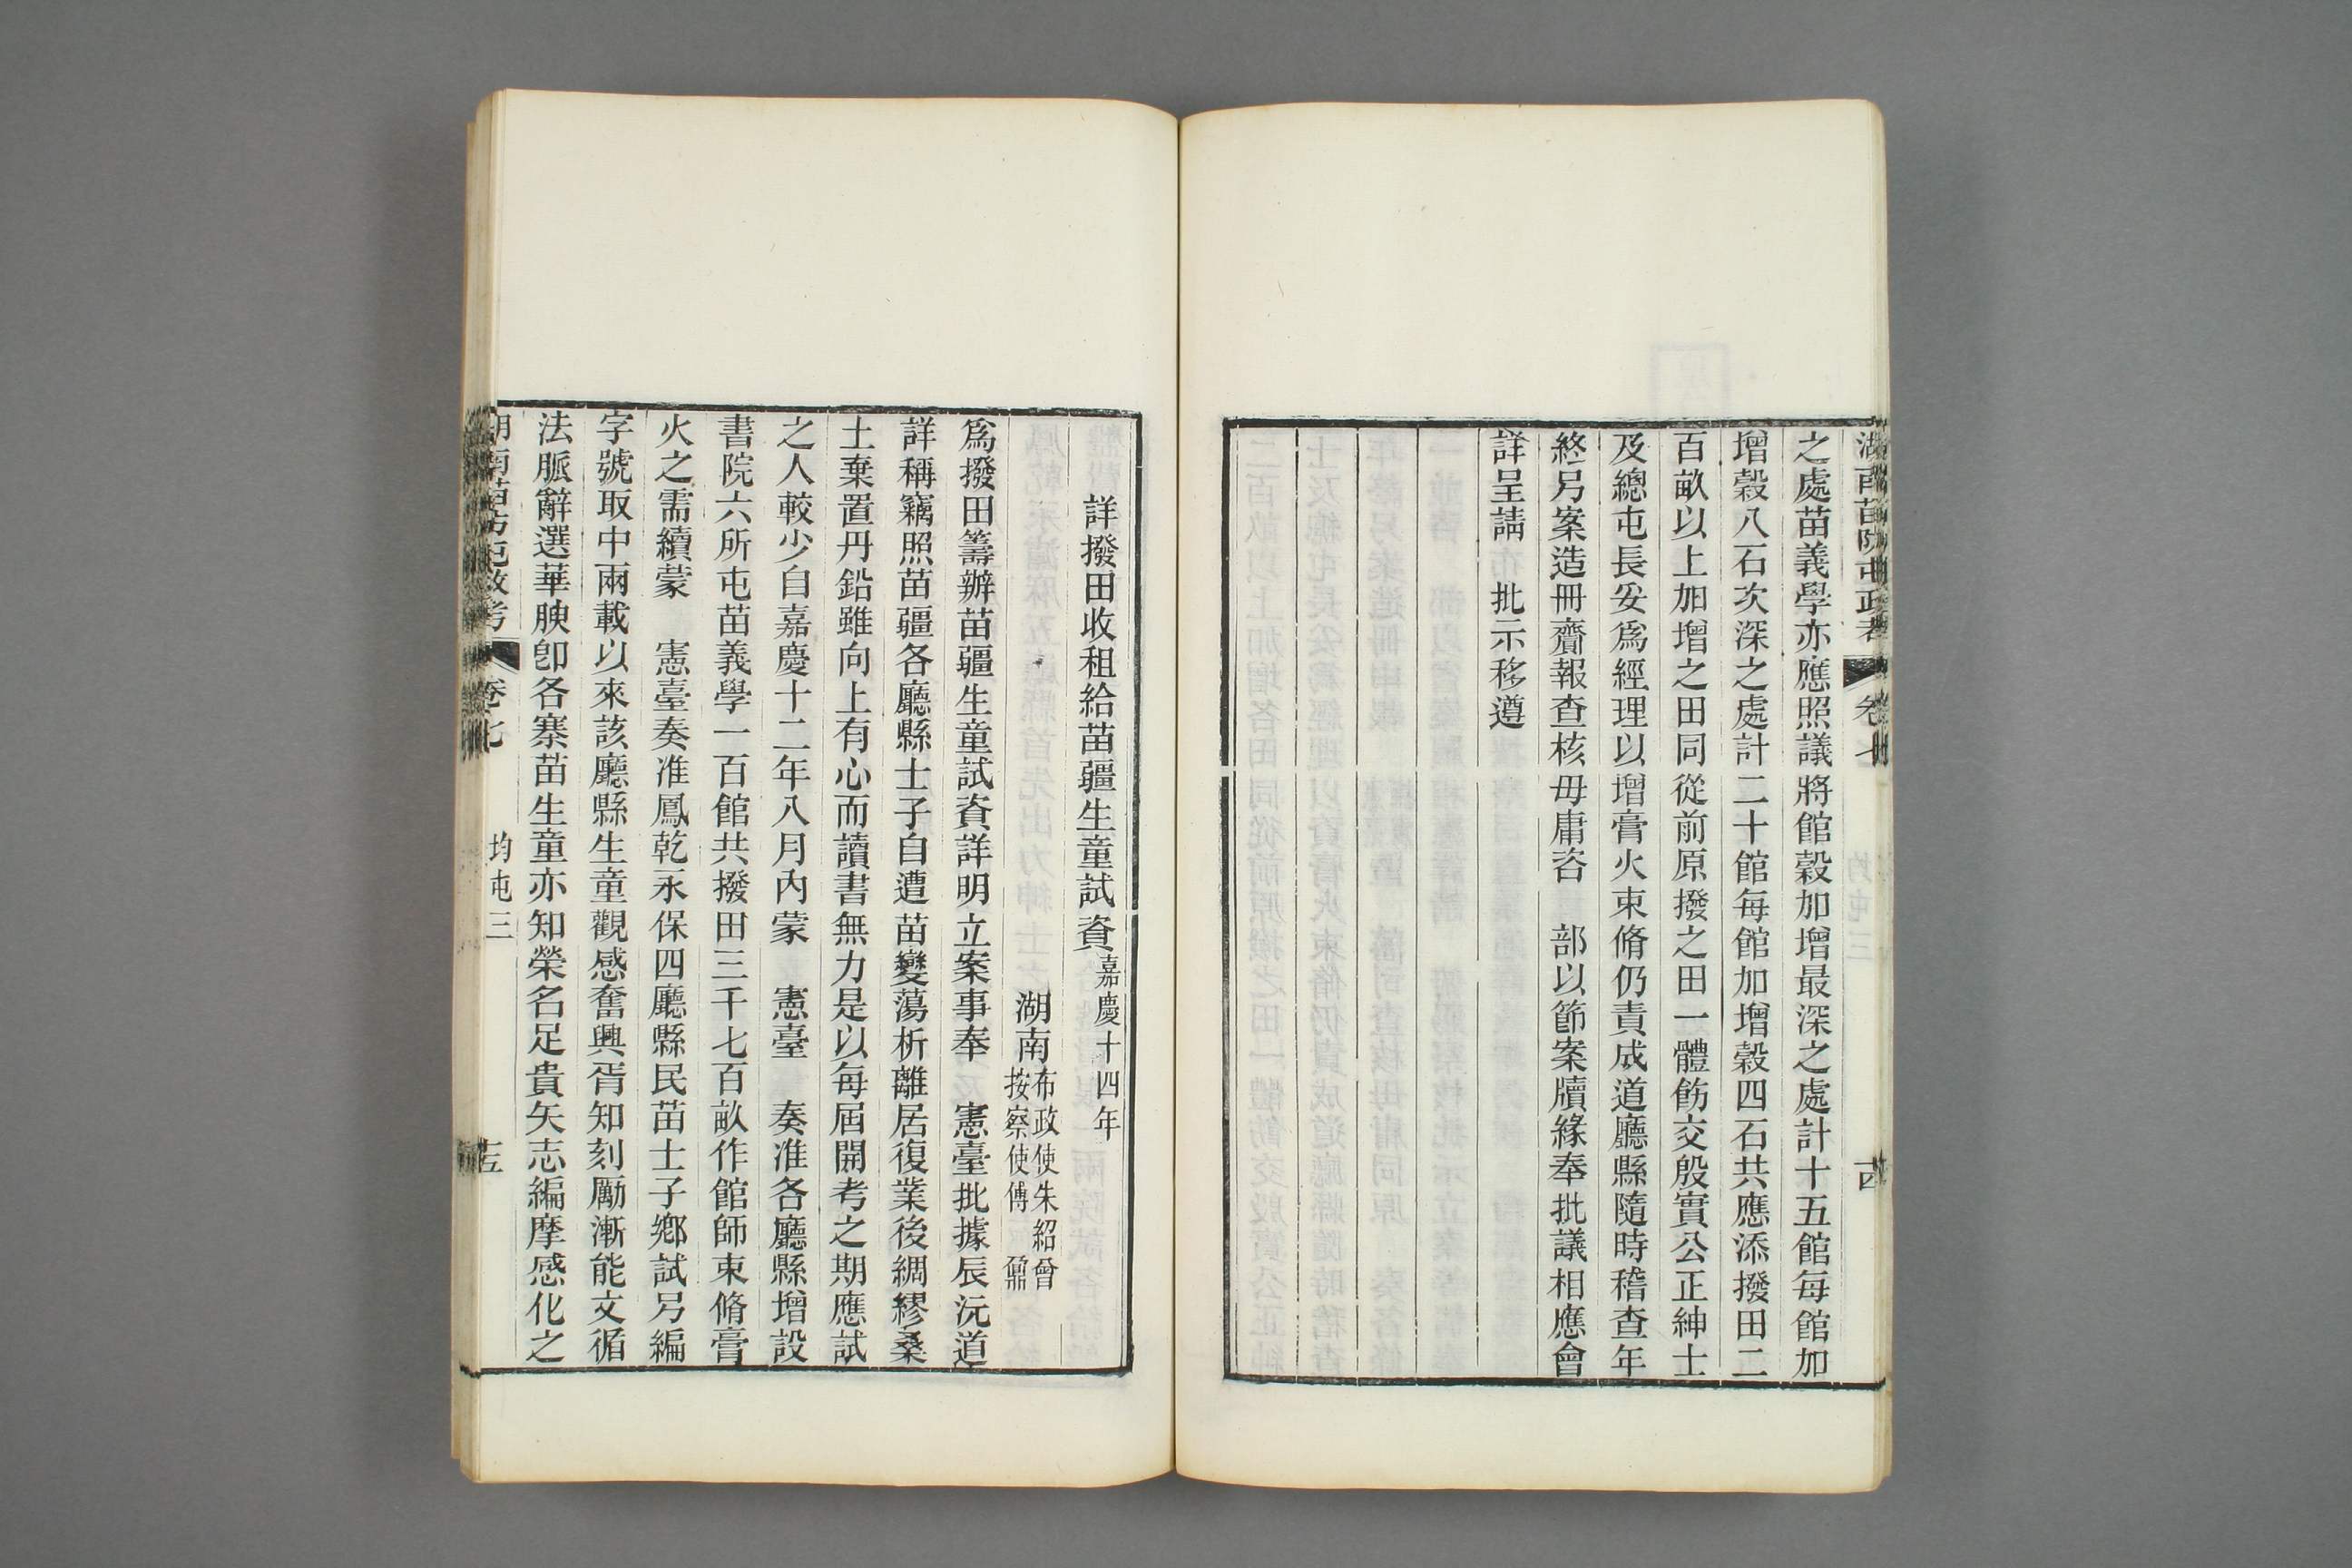 湖南苗防屯政考 卷七 十四
之處苗義學亦應照議將館穀加增最深之處計十五館每館加
增穀八石次深之處計二十館每館加增穀四石共應添撥田二
百畝以上加增之田同從前原撥之田一體飭交殷實公正紳士
及總屯長妥爲經理以增膏火束脩仍責成道廳縣隨時稽查年
終另案造冊齎報查核毋庸咨 部以節案牘緣奉批議相應會
詳呈請 批示移遵
詳撥田收租給苗疆生童試資嘉慶十四年
湖南布政使朱紹曾按察使傅鼐
爲撥田籌辦苗疆生童試資詳明立案事奉 憲臺批據辰沅道
詳稱竊照苗疆各廳縣士子自遭苗變蕩析離居復業後綢繆桑
土棄置丹鉛雖向上有心而讀書無力是以每屆開考之期應試
之人較少自嘉慶十二年八月內蒙 憲臺 奏准各廳縣增設
書院六所屯苗義學一百館共撥田三千七百畝作館師束脩膏
火之需續蒙 憲臺奏准鳳乾永保四廳縣民苗士子鄉試另編
字號取中兩載以來該廳縣生童觀感奮興胥知刻勵漸能文循
法脈辭選華腴卽各寨苗生童亦知榮名足貴矢志編摩感化之
湖南苗防屯政考 卷七 均屯三 十五